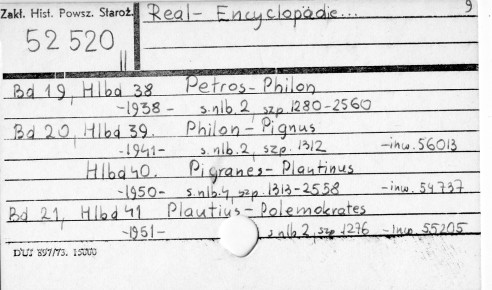 Zakł. Hist. Powsz. Staroż.
Real- Encyclopädie... 9
52 520
Bd 19, Hlbd 38 Petros-Philon
-1938- s.nlb. 2, szp. 1280-2560
Bd 20, Hlbd 39. Philon-Pignus
-1941- s.nlb. 2, szp. 1312 -inw. 56013
Hlbd 40. Pigranes-Plautinus
-1950- s.nlb. 4, szp. 1313-2558 -inw. 54737
Bd 21, Hlbd 41 Plautius-Polemokrates
-1951- s nlb. 2, szp 1276 -inw. 55205
DUJ 897/73. 15000